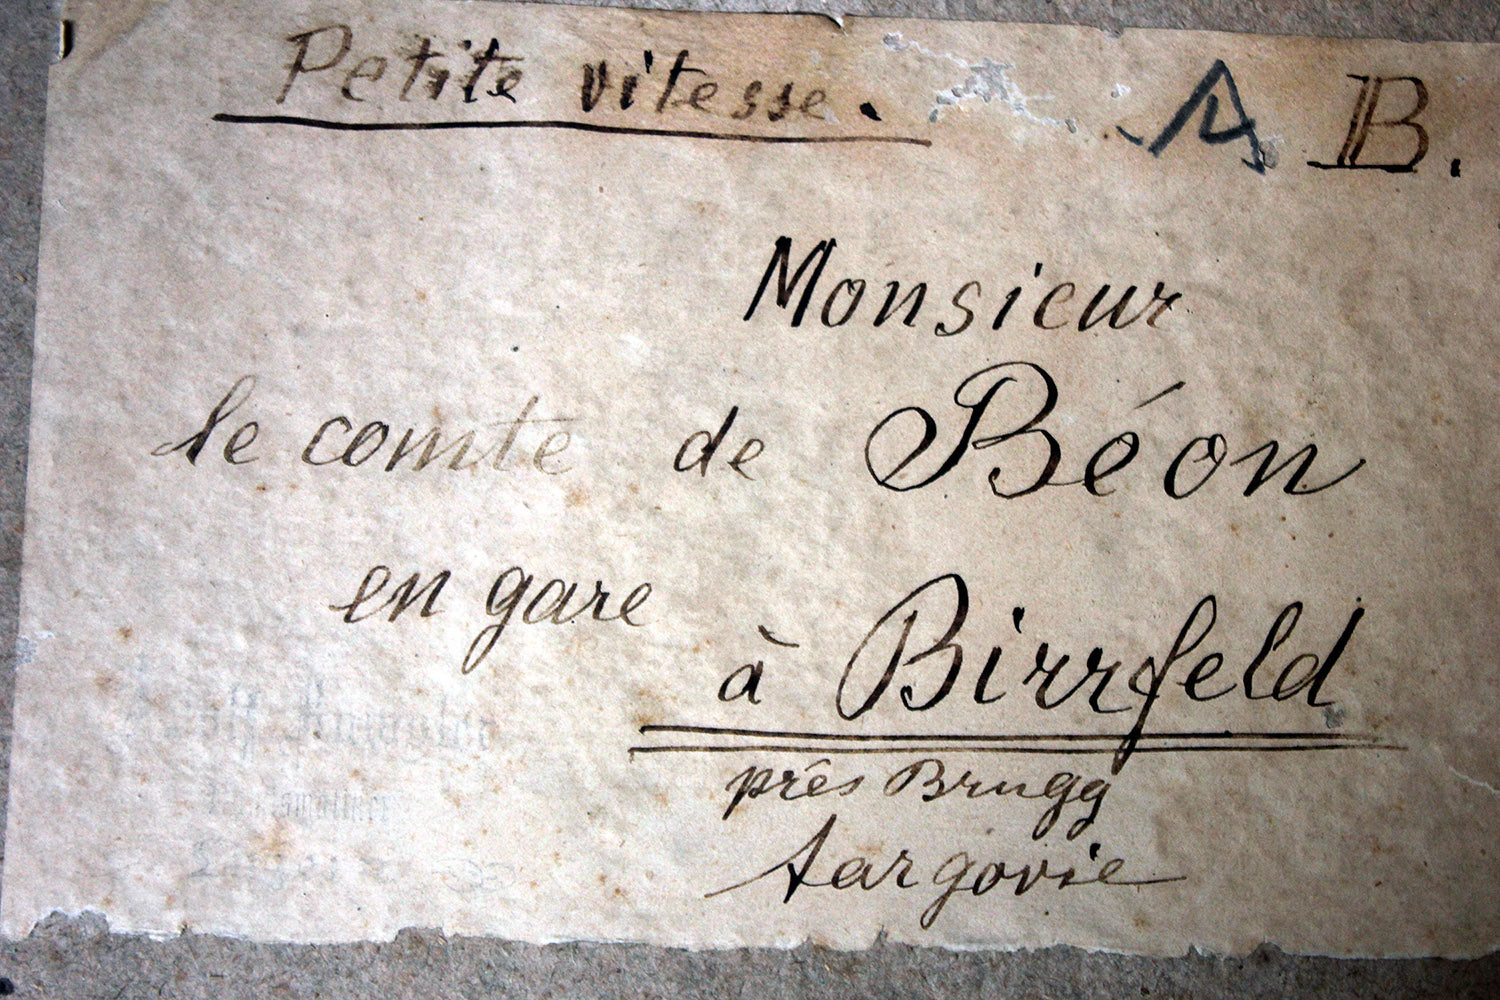 Petite vitesse. A B.
Monsieur
le comte de Béon
en gare
à Birrfeld
près Brugg
Aargovie